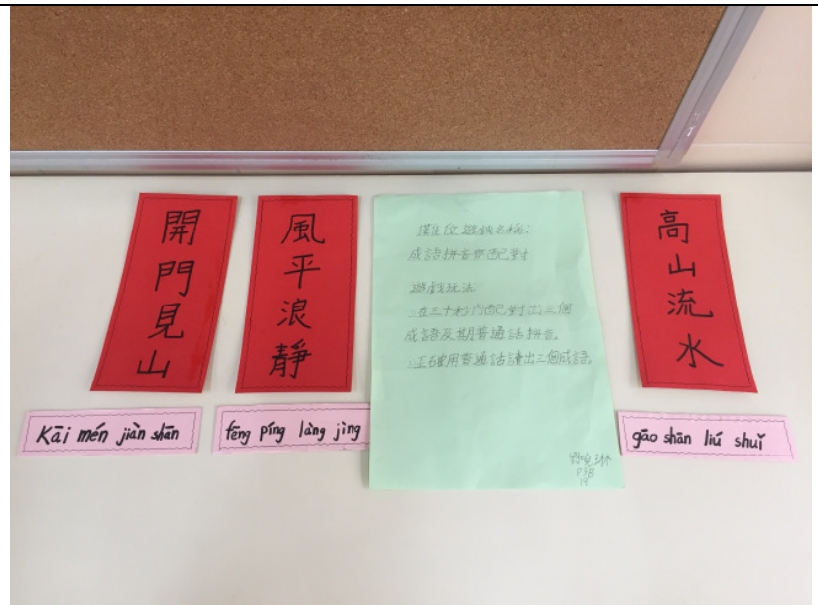 開門見山
風平浪靜
攤位遊戲名稱:
成語拼音齊配對
遊戲玩法:
在三十秒內配對出三個
成語及期普通話拼音。
正確用普通話讀出三個成語。
P3B
19
高山流水
Kāi mén jiàn shān
fēng píng làng jìng
gāo shān liú shuǐ